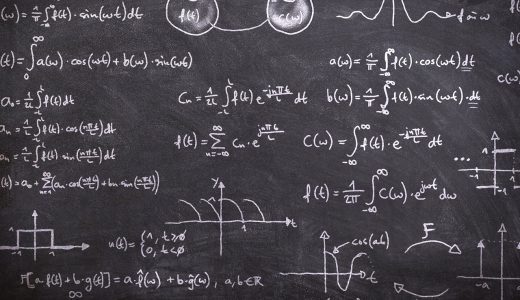 (ω) = 1/π ∫_{-∞}^{∞} f(t)·sin(ωt)dt
f(t)
c(ω)
f sin ω
(t) = ∫_0^∞ a(ω)·cos(ωt) + b(ω)·sin(ωt)
a(ω) = 1/π ∫_{-∞}^{∞} f(t)·cos(ωt)dt
a₀ = 1/2L ∫_{-L}^{L} f(t)dt
Cn = 1/2L ∫_{-L}^{L} f(t) e^{-jnπt/L} dt
b(ω) = 1/π ∫_{-∞}^{∞} f(t)·sin(ωt)dt
an = 1/L ∫_{-L}^{L} f(t)·cos(nπt/L)dt
f(t) = Σ_{n=-∞}^{∞} Cn·e^{jnπt/L}
C(ω) = ∫_{-∞}^{∞} f(t)·e^{-jnπt/L} dt
an = 1/L ∫_{-L}^{L} f(t) sin(nπt/L)dt
...
(t) = a₀ + Σ_{n=1}^{∞} (an·cos(nπt/L) + bn sin(nπt/L))
f(t) = 1/2π ∫_{-∞}^{∞} C(ω)·e^{jωt} dω
y
1
t
1
u(t) = {1, t>0
{0, t<0
cos(at)
t
F
F[a·f(t) + b·g(t)] = a·f̂(ω) + b·ĝ(ω), a,b∈ℝ
∞